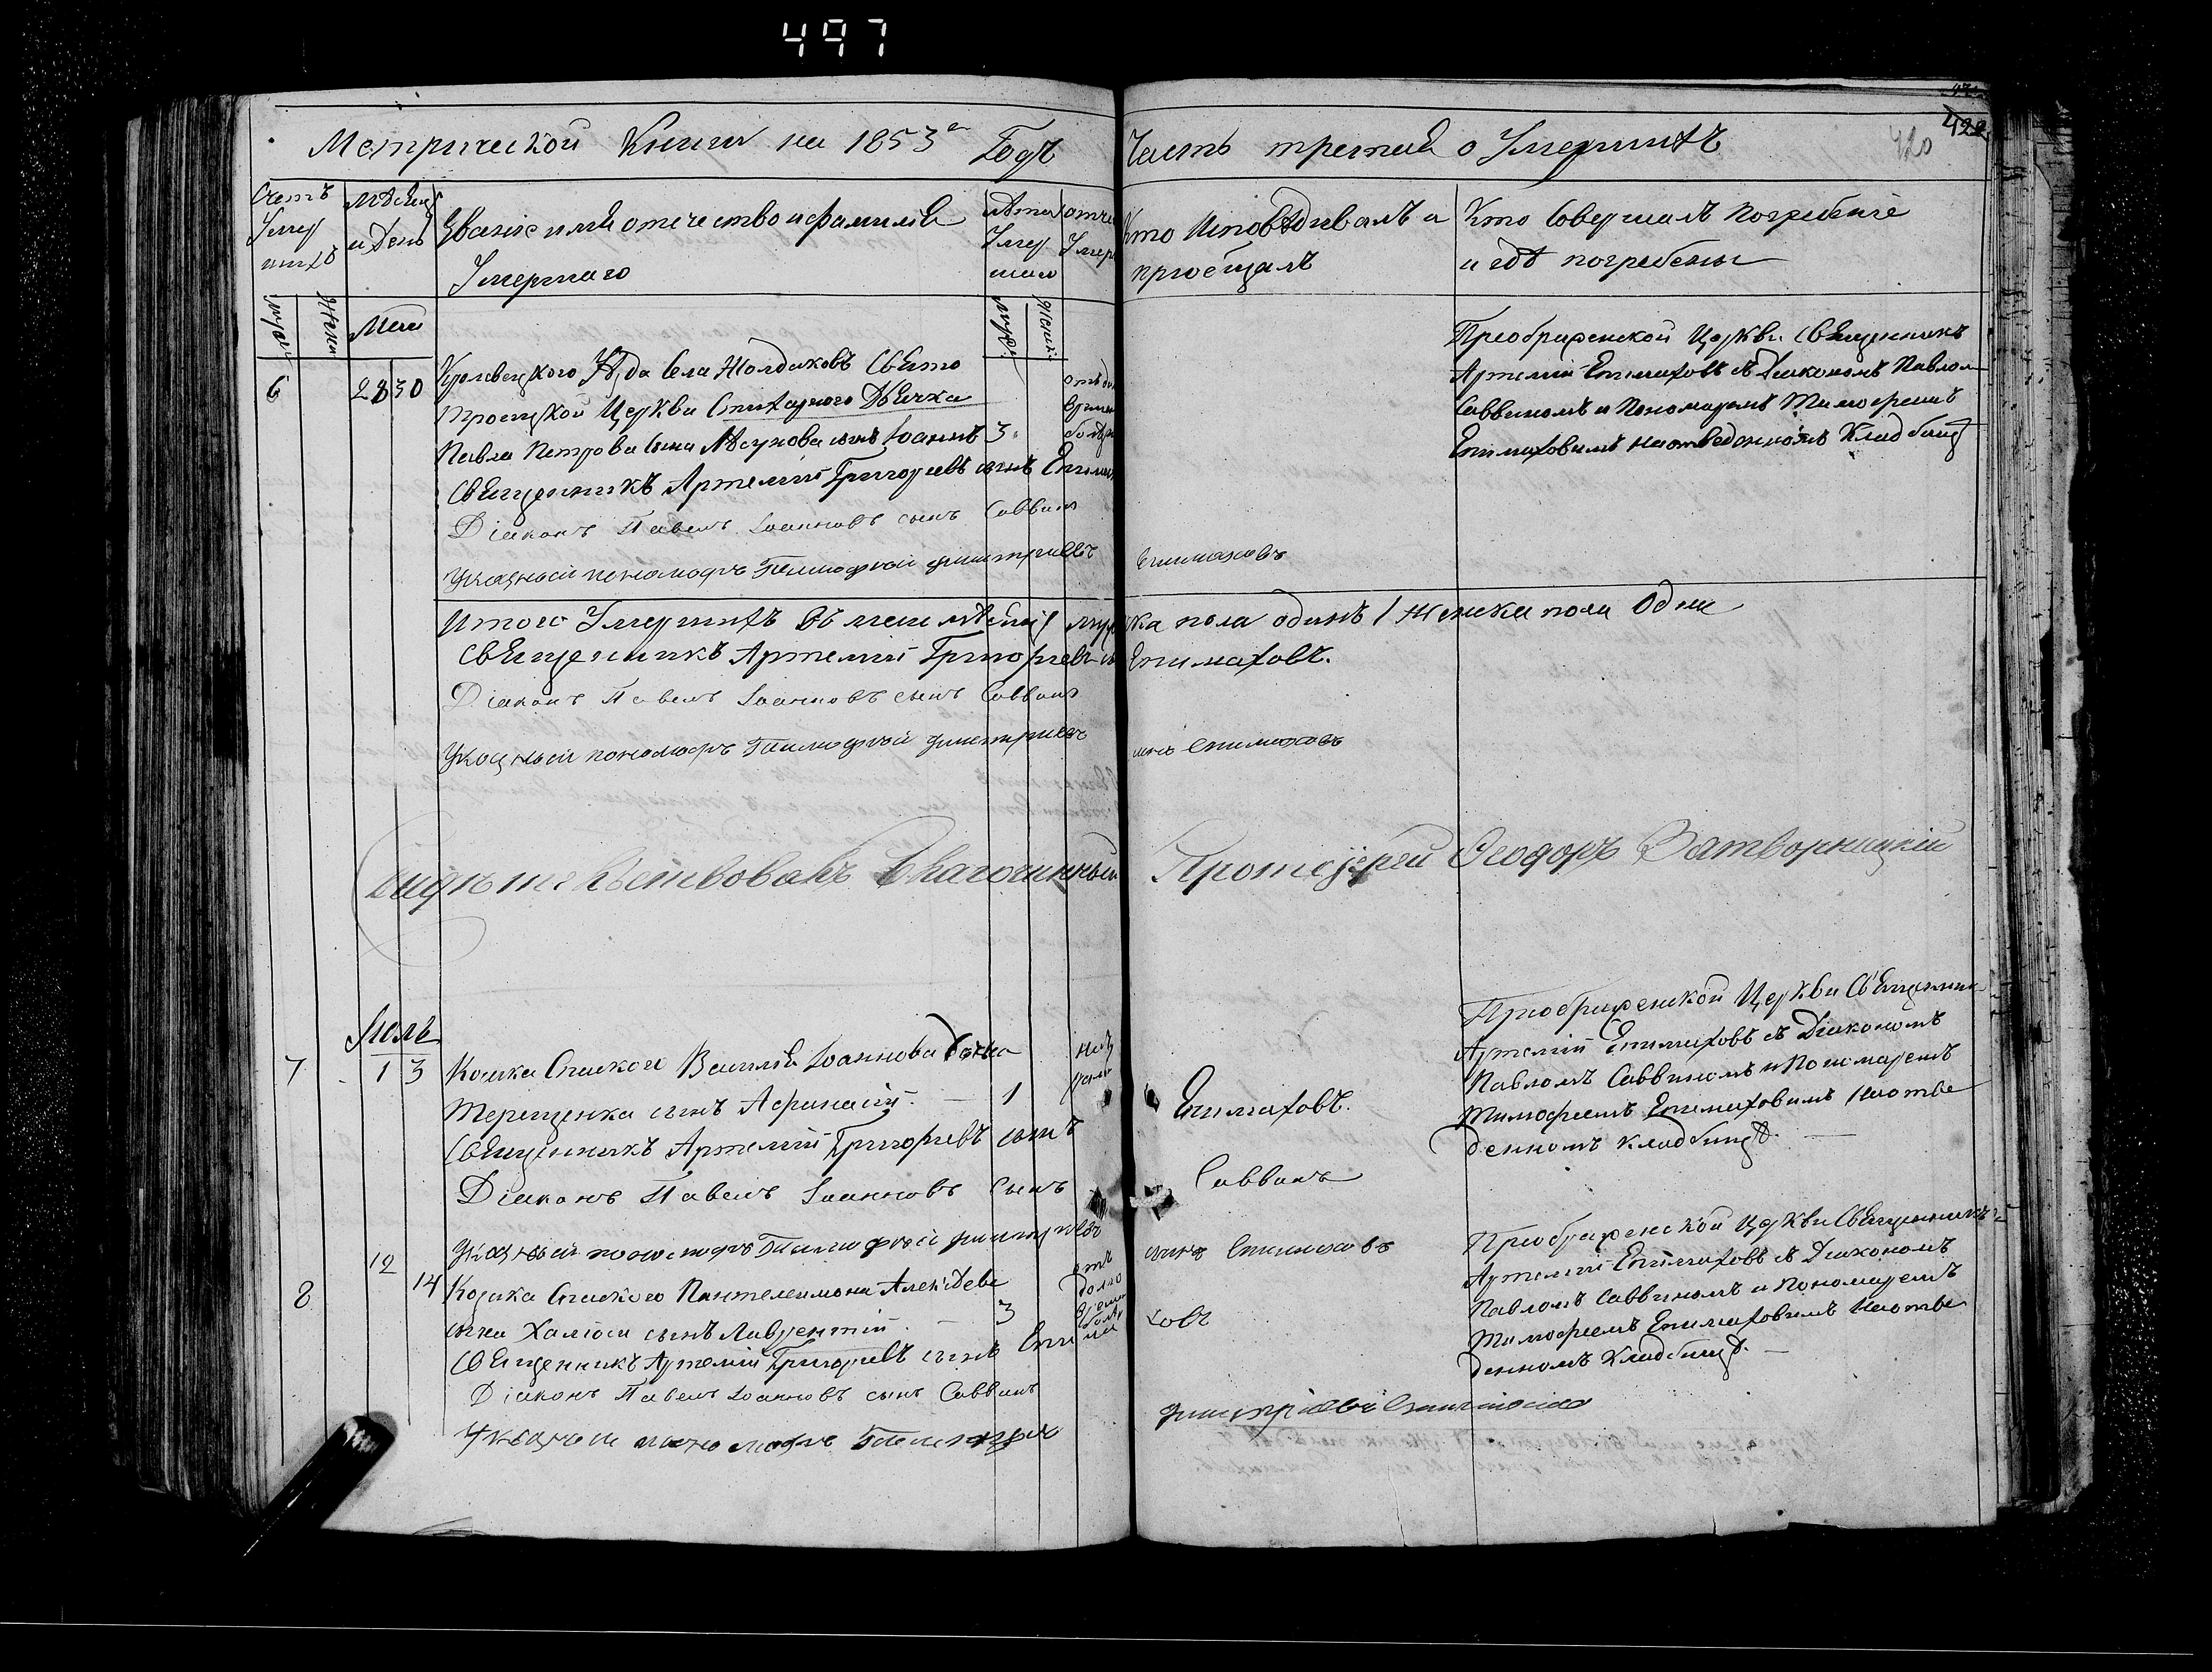 497
Метрической Книги на 1853й Годъ Часть третая о Умершихъ
420
Счетъ Умершихъ
Мѣсяцъ и День
Званіе имя отечество и фамилія Умершаго
Лѣта Умершаго
Кто Исповѣдивалъ и пріобщалъ
Кто Совершалъ погребеніе и гдѣ погребены
муж женск
Маія
муж. женск
6 28 30 Кролевецкого Уѣзда Села Жолдаковъ Свято
Троицкой Церкви Стихарного Дьячка
Павла Петрова сына сынъ Іоаннъ 3.
Преображенской Церкви Священникъ
Артемій Епимаховъ съ Діякономъ Павломъ
Саввиномъ и Пономаремъ Тимофеемъ
Епимаховимъ на отведенномъ Кладбищѣ
Священникъ Артемій Григориевъ сынъ Епимаховъ
Діяконъ Павелъ Іоанновъ сынъ Саввинъ
Указный пономарь Тимофей Димитриевъ Епимаховъ
Итого Умершихъ въ маи мѣсяцѣ мужеска пола одинъ 1 женска пола одна
Священникъ Артемій Григориевъ сынъ Епимаховъ.
Діяконъ Павелъ Іоанновъ сынъ Саввинъ
Указный пономарь Тимофей Димитриевъ сынъ Епимаховъ
Свидѣтельствовалъ Благочинный Протоіерей Ѳеодоръ Затворницкій
Іюль
7 1 3 Козака Спаского Василія Іоаннова сына
Терещенка сынъ Афанасій. — 1
Преображенской Церкви Священникъ
Артемій Епимаховъ съ Діякономъ
Павломъ Саввиномъ и Пономаремъ
Тимофеемъ Епимаховимъ на отве
денномъ кладбищѣ. —
Священникъ Артемій Григориевъ сынъ Епимаховъ.
Діяконъ Павелъ Іоанновъ сынъ Саввинъ
Указный пономарь Тимофей Димитриевъ сынъ Епимаховъ
8 12 14 Козака Спаского Пантелеимона Алексѣева
сына сынъ Лаврентій. — 3
Преображенской Церкви Священникъ
Артемій Епимаховъ съ Діякономъ
Павломъ Саввиномъ и Пономаремъ
Тимофеемъ Епимаховимъ на отве
денномъ Кладбищѣ. —
Священникъ Артемій Григориевъ сынъ Епимаховъ
Діяконъ Павелъ Іоанновъ сынъ Саввинъ
Указный пономарь Тимофей Димитріевъ Епимаховъ